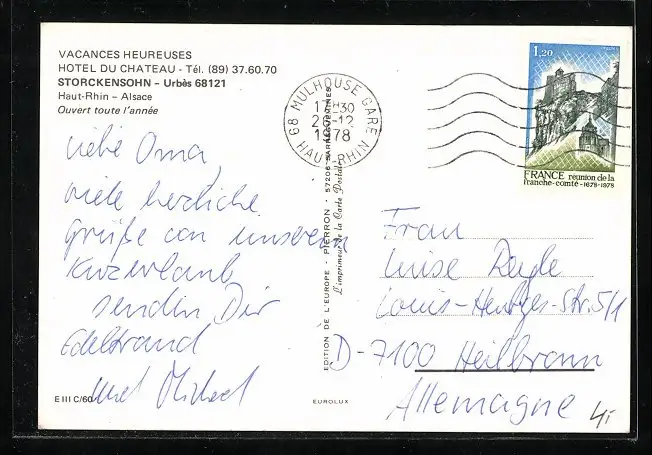 VACANCES HEUREUSES
HOTEL DU CHATEAU - Tél. (89) 37.60.70
STORCKENSOHN - Urbès 68121
Haut-Rhin - Alsace
Ouvert toute l'année
Liebe Oma,
viele herzliche
Grüße von unserem
Kurzurlaub
senden Dir
Edeltraud
und Michael
E III C/60
EDITION DE L'EUROPE · PIERRON · 57206 SARREGUEMINES
L'imprimeur de la Carte Postale
EUROLUX
68 MULHOUSE GARE
17H30
26-12
1978
HAUT-RHIN
1,20
FRANCE réunion de la
franche-comté-1678-1978
Frau
Luise
Louis-Hentges-Str. 5/1
D-7100 Heilbronn
Allemagne